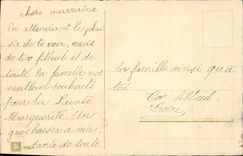 Chère marraine
En attendant le plaisir
de te voir, moi
ton filleul et de
toute la famille nos
meilleur souhaits
pour la Sainte
Marguerite. Un
gros baiser à ma
tante de toute
les famille ainsi qu'à
toi
Ton filleul